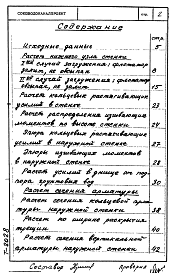 СОЮЗВОДОКАНАЛПРОЕКТ
стр. 2
Содержание
стр.
Исходные данные 5
Расчет нижнего узла стенки
I-ый случай загружения: флотатор
залит, не обсыпан 7
II-ой случай загружения: флотатор
обсыпан, не залит 15
Расчет кольцевых растягивающих
усилий в стенке 23
Расчет распределения изгибающих
моментов по высоте стенки 24
Эпюра кольцевых растягивающих
усилий в наружной стенке 27
Эпюры изгибающих моментов
в наружной стенке 28
Расчет усилий в днище от подпора
грунтовых вод 30
Расчет сечения арматуры
Расчет сечения кольцевой арматуры
наружной стенки 38
Расчет по ширине раскрытия
трещин 40
Расчет сечения вертикальной
арматуры наружной стенки 42
Т-2028
Составил
Проверил